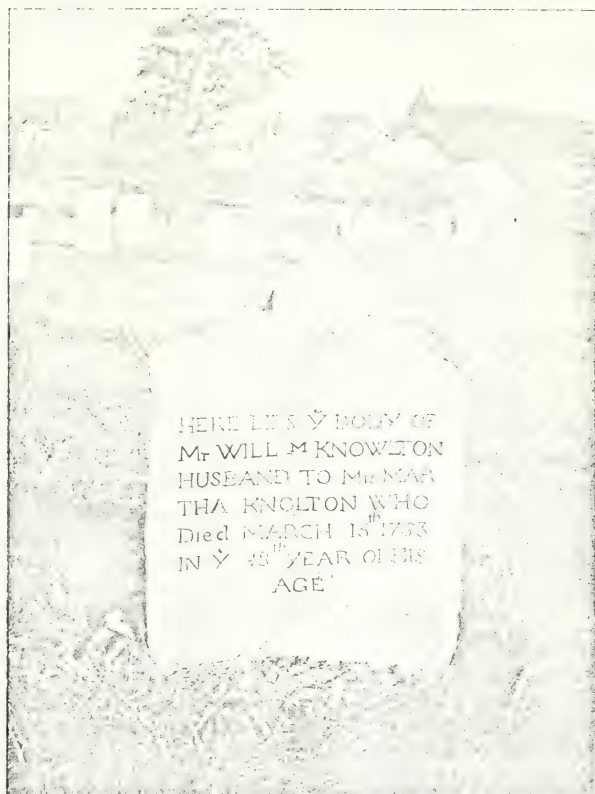 HERE LIES Ẏ BODY OF
Mr WILL M KNOWLTON
HUSBAND TO Mrs MAR
THA KNOLTON WHO
Died MARCH 1753
IN Ẏ YEAR OF HIS
AGE